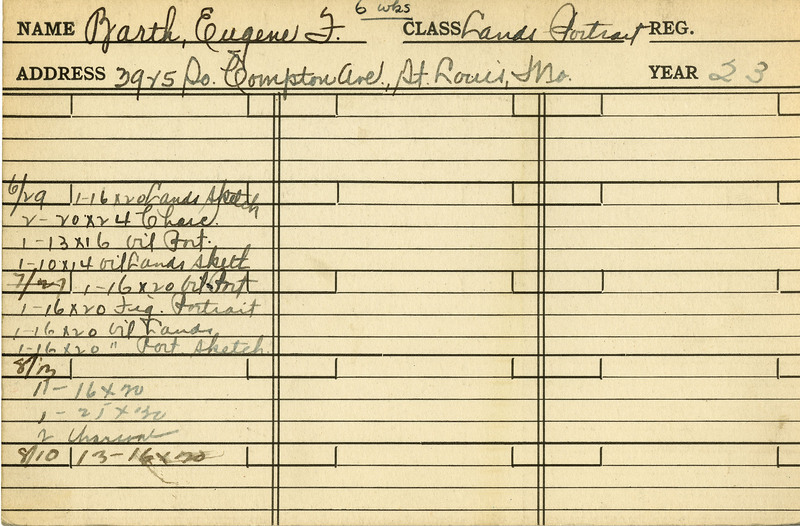 6 wks
NAME Barth, Eugene F. CLASS Lands Portrait REG.
ADDRESS 3925 So. Compton Ave., St. Louis, Mo. YEAR 23
6/29 1-16x20 Lands Sketch
2-20x24 Charc.
1-13x16 oil Port.
1-10x14 oil Lands Skett
7/27 1-16x20 Oil Port
1-16x20 Fig. Portrait
1-16x20 Oil Lands
1-16x20 " Port. Sketch
8/
11-16x20
1-25x30
2 Charcoal
8/10 13-16x20